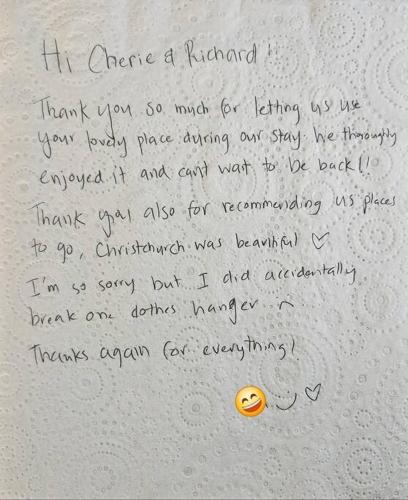 Hi Cherie & Richard!
Thank you so much for letting us use
your lovely place during our stay. We thoroughly
enjoyed it and can't wait to be back!!
Thank you also for recommending us places
to go, Christchurch was beautiful ♡
I'm so sorry but I did accidentally
break one clothes hanger
Thanks again for everything!